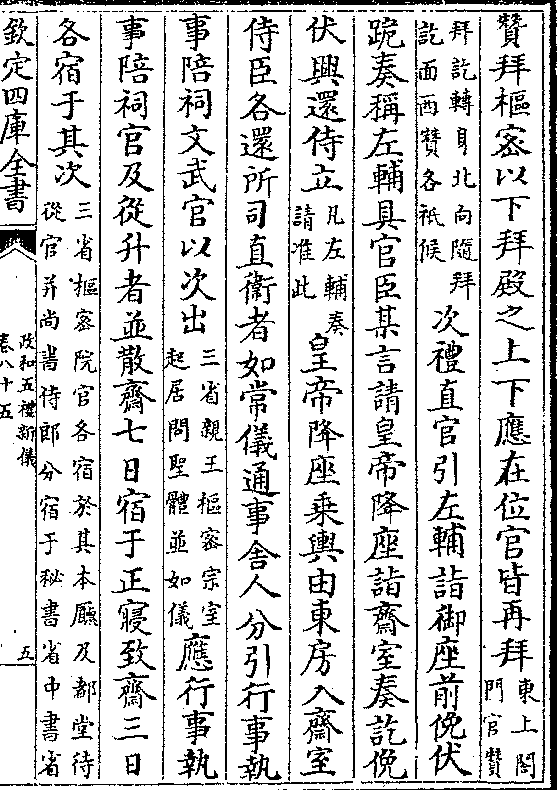 贊拜樞宻以下拜殿之上下應在位官皆再拜東上閤
門官贊
拜訖轉身北向隨拜
訖面西贊各祗候次禮直官引左輔詣御座前俛伏
跪奏稱左輔具官臣某言請皇帝降座詣齋室奏訖俛
伏興還侍立凡左輔奏
請准此皇帝降座乗輿由東房入齋室
侍臣各還所司直衞者如常儀通事舍人分引行事執
事陪祠文武官以次出三省親王樞宻宗室
起居問聖體並如儀應行事執
事陪祠官及從升者並散齋七日宿于正寢致齋三日
各宿于其次三省樞宻院官各宿於其本廳及都堂待
從官并尚書侍郎分宿于秘書省中書省
欽定四庫全書
政和五禮新儀
卷八十五
五